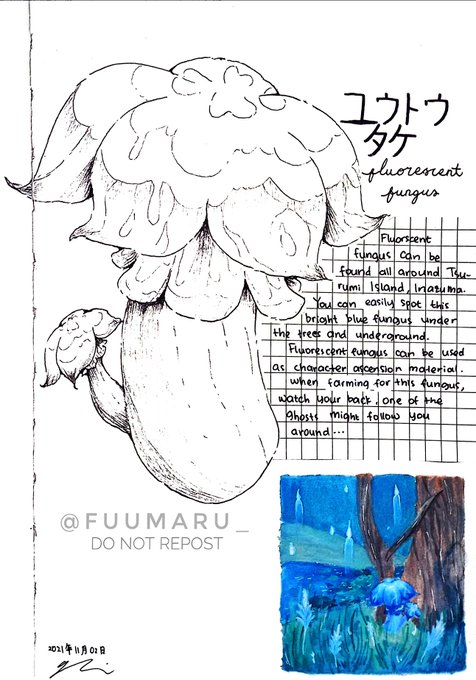 ユウトウ
タケ
fluorescent
fungus
Fluorscent
fungus can be
found all around Tsu-
rumi Island, Inazuma.
You can easily spot this
bright blue fungus under
the trees and underground.
Fluorescent fungus can be used
as character ascension material.
when farming for this fungus,
watch your back, one of the
ghosts might follow you
around...
@FUUMARU_
DO NOT REPOST
2021年11月02日